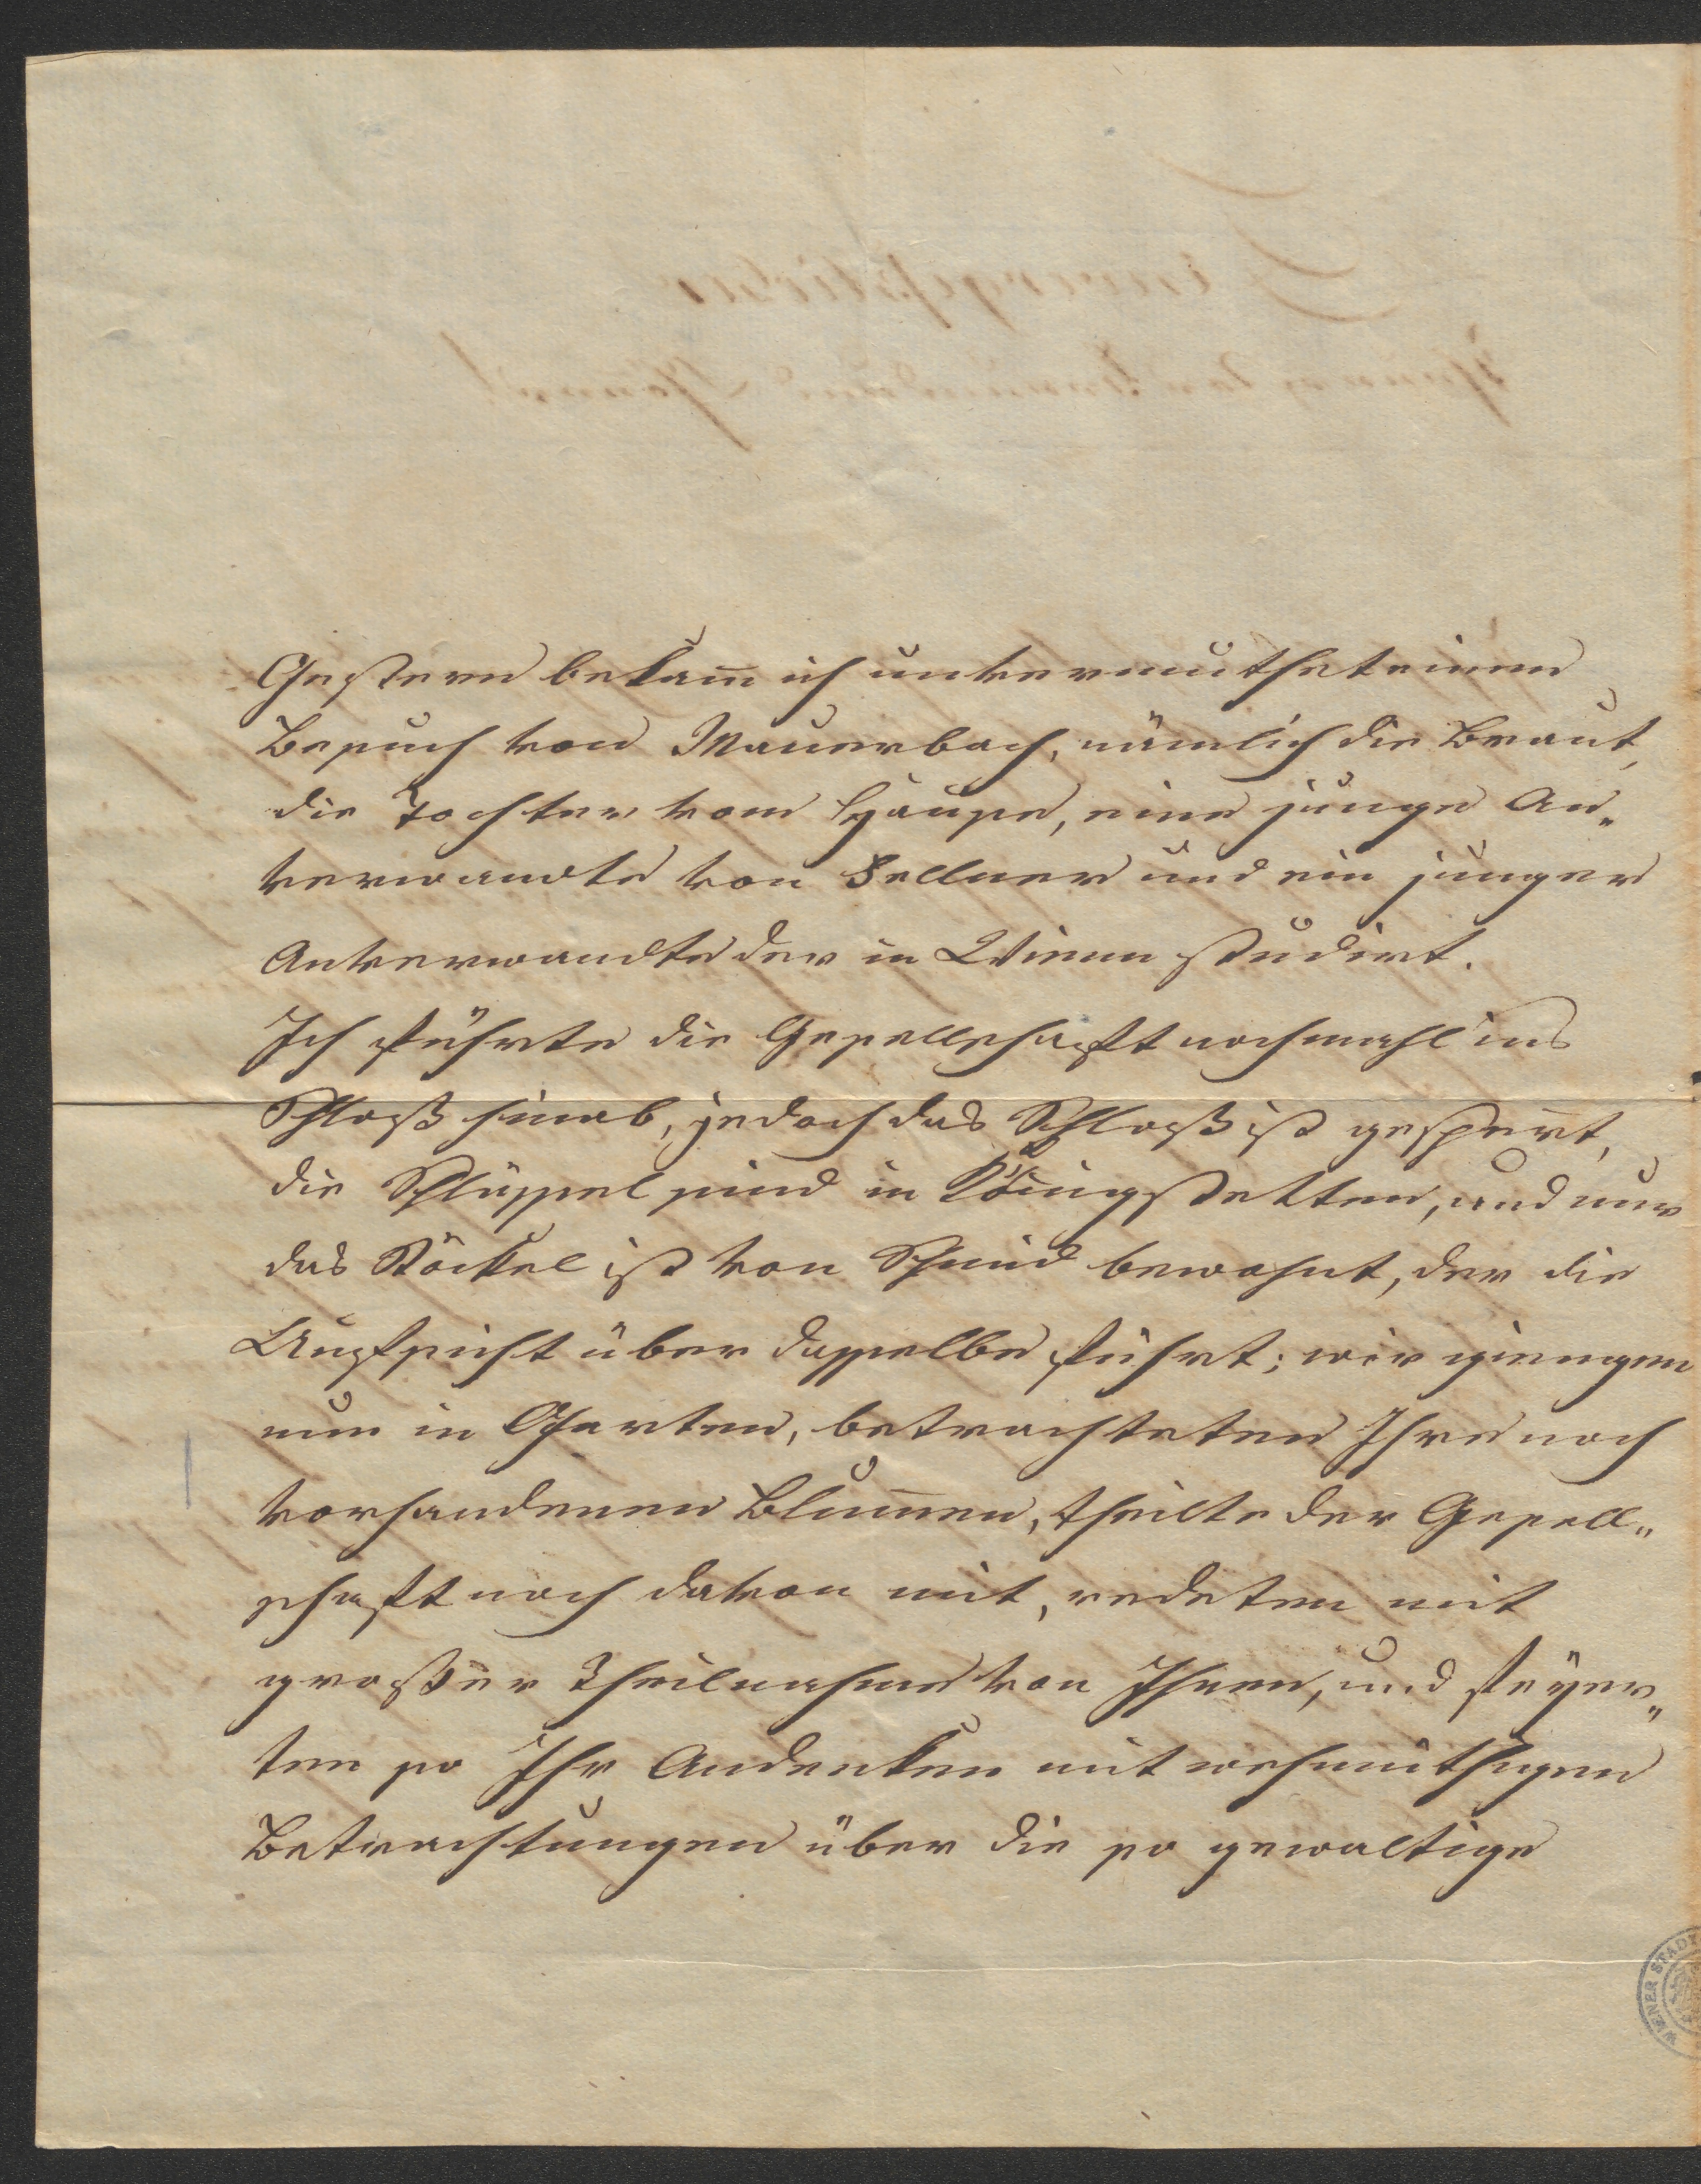 Gestern bekam̅ ich unvermuthet einen
Besuch von Mauerbach, nämlich die Braut,
die Tochter vom Hause, eine junge An„
verwandte von Sellner und ein junger
Anverwandte der in Wienn studirt.
Ich führte die Gesellschaft nochmahl ins
Schloß hinab, jedoch das Schloß ist gesperrt,
die Schlüssel sind in Königstetten, und nur
das Stöckel ist von Schmid bewohnt, der die
Aufsicht über dasselbe führt; wir giengen
nun in Garten, betrachteten Ihre noch
vorhandenen Blum̅en, theilte der Gesell„
schaft noch davon mit, redeten mit
großer Theilnahme von Ihnen, und feyer„
ten so Ihr Andenken mit wehmüthigen
Betrachtungen über die so gewaltige
WIENER STADT